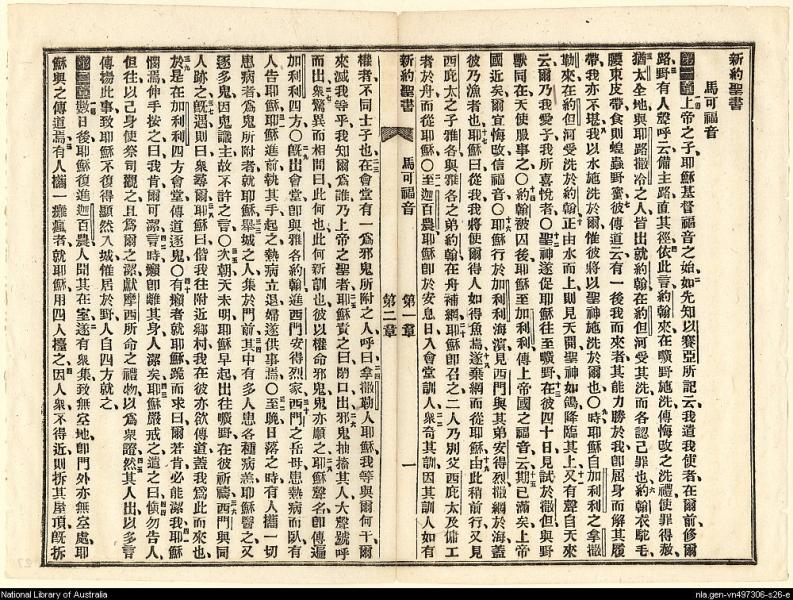 新約聖書
馬可福音
第一章 上帝之子耶穌基督福音之始如先知以賽亞所記云我遣我使者在爾前修爾
路野有人聲呼云備主路直其徑依此言約翰來在曠野施洗傳悔改之洗禮使罪得赦
猶太全地與耶路撒冷之人皆出就約翰在約但河受其洗而各認己罪也約翰衣駝毛
腰束皮帶食則蝗蟲野蜜彼傳道云有一後我而來者其能力勝於我即屈身而解其履
帶我亦不堪我以水施洗於爾惟彼將以聖神施洗於爾也〇時耶穌自加利利之拿撒
勒來在約但河受洗於約翰正由水而上則見天開聖神如鴿降臨其上又有聲自天來
云爾乃我愛子我所喜悅者〇聖神遂促耶穌往至曠野在彼四十日見試於撒但與野
獸同在天使服事之〇約翰被囚後耶穌至加利利傳上帝國之福音云期已滿矣上帝
國近矣爾宜悔改信福音〇耶穌行於加利利海濱見西門與其弟安得烈撒網於海蓋
彼乃漁者也耶穌曰從我我將使爾得人如得魚焉遂棄網而從耶穌由此稍前行又見
西庇太之子雅各與雅各之弟約翰在舟補網耶穌即召之二人乃別父西庇太及傭工
者於舟而從耶穌〇至迦百農耶穌即於安息日入會堂訓人衆奇其訓因其訓人如有
新約聖書 馬可福音 第一章 一
第二章
權者不同士子也在會堂有一爲邪鬼所附之人呼曰拿撒勒人耶穌我等與爾何干爾
來滅我等乎我知爾爲誰乃上帝之聖者耶穌責之曰閉口出邪鬼抽搐其人大聲號呼
而出衆驚異而相問曰此何也此何新訓也彼以權命邪鬼鬼亦順之耶穌聲名即傳遍
加利利四方〇既出會堂即與雅各約翰進西門安得烈家西門之岳母患熱病而臥有
人告耶穌耶穌進前執其手起之熱病立退婦遂供事焉〇至晚日落之時有人攜一切
患病者爲鬼所附者就耶穌舉城之人集於門前其中有多人患各種病耶穌醫之又
逐多鬼因鬼識主故不許之言〇次朝天未明耶穌早起出往曠野在彼祈禱西門與同
人跡之既遇則曰衆尋爾耶穌曰偕我往附近鄉村我在彼亦欲傳道蓋我爲此而來也
於是在加利利四方會堂傳道逐鬼〇有癩者就耶穌跪而求曰爾若肯必能潔我耶穌
憫焉伸手按之曰我肯爾可潔言時癩即離其身人潔矣耶穌嚴戒之遣之曰愼勿告人
但往以己身使祭司觀之且爲爾之潔獻摩西所命之禮物以爲衆證然其人出以多言
傳揚此事致耶穌不復得顯然入城惟居於野人自四方就之
第二章 數日後耶穌復進迦百農人聞其在室遂有衆集致無室地即門外亦無室處耶
穌與之傳道焉有人攜一癱瘋者就耶穌用四人擡之因人衆不得近則拆其屋頂既拆
National Library of Australia
nla.gen-vn497306-s26-e